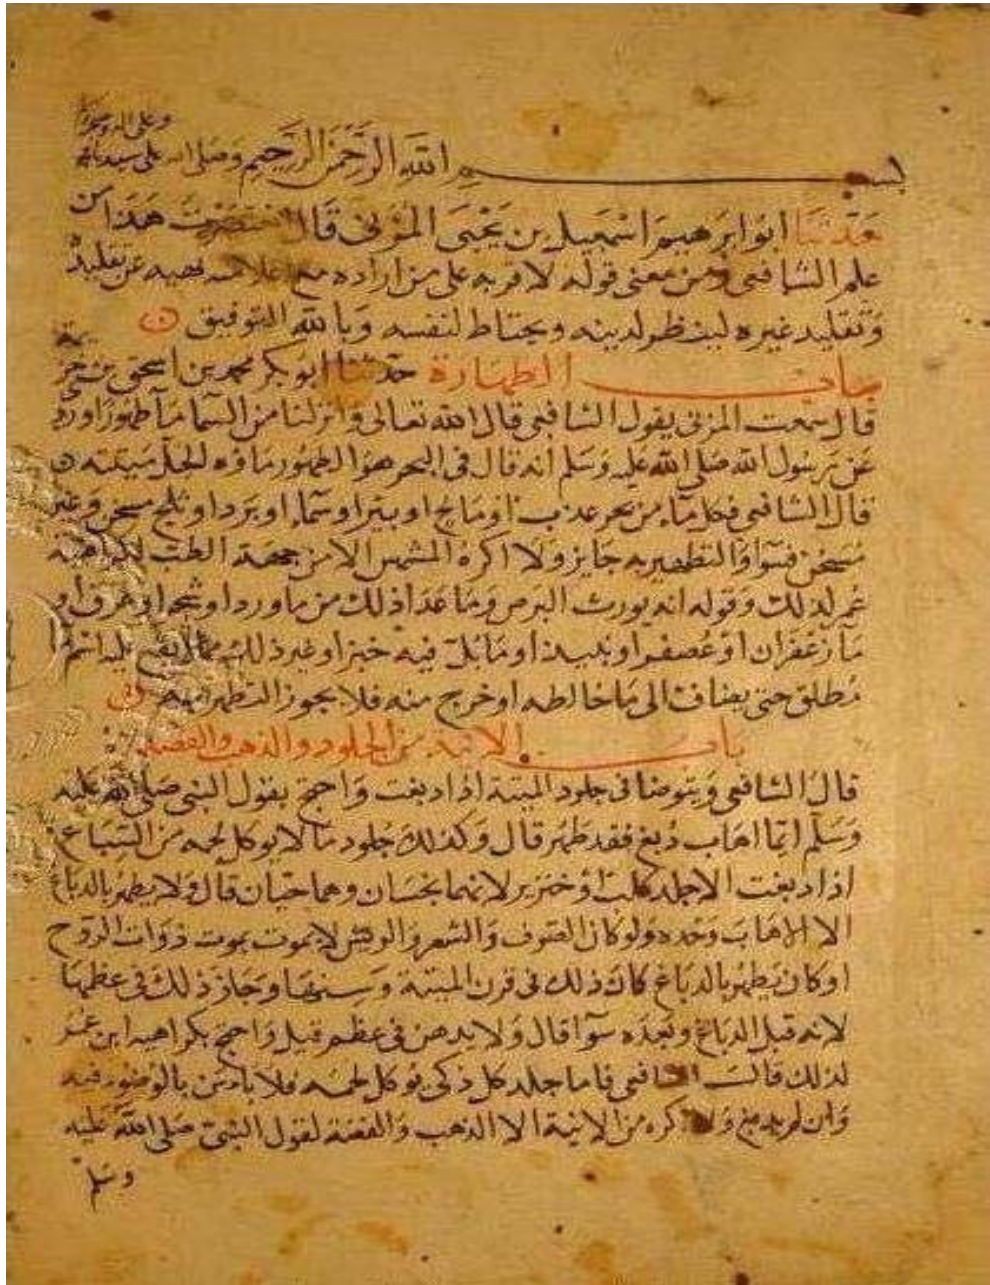 بسم الله الرحمن الرحيم وصلى الله على سيدنا محمد
وعلى اله وصحبه
حدثنا ابو ابرهيم اسمعيل بن يحيى المزنى قال اختصرت هذا من
علم الشافعى ومن معنى قوله لاقربه على من اراده مع اعلاميه نهيه عن تقليده
وتقليد غيره لينظر لدينه ويحتاط لنفسه وبالله التوفيق
باب الطهارة حدثنا ابو بكر محمد بن اسحق بن خز
يمة
قال سمعت المزنى يقول الشافعى قال الله تعالى وانزلنا من السما مآ طهورا وروى
عن رسول الله صلى الله عليه وسلم انه قال فى البحر هو الطهور ماؤه الحل ميتته
قال الشافعى فكل مآء من بحر عذب او مالح او بئر او سمآء او برد او ثلج مسخن وغير
مسخن فسوآ والتطهير به جايز ولا اكره المشمس الا من جهة الطب لكراهية
عمر لذلك وقوله انه يورث البرص وما عدا ذلك من ما ورد او شجر او عرق او
مآ زعفران او عصفر او نبيذ او ما بل فيه خبز او غير ذلك مما لا يقع عليه اسم مآ
مطلق حتى يضاف الى ما خالطه او خرج منه فلا يجوز التطهر به
باب الانية من الجلود والذهب والفضة
قال الشافعى ويتوضا فى جلود الميتة اذا دبغت واحتج بقول النبى صلى الله عليه
وسلم ايما اهاب دبغ فقد طهر قال وكذلك جلود ما لا يوكل لحمه من السباع
اذا دبغت الا جلد كلب او خنزير لانهما نجسان وهما حيان قال ولا يطهر بالدباغ
الا الاهاب وحده ولو كان الصوف والشعر والريش لا يموت بموت ذوات الروح
او كان يطهر بالدباغ كان ذلك فى قرن الميتة وسنها وجاز ذلك فى عظمها
لانه قبل الدباغ وبعده سوآ قال ولا يدهن فى عظم فيل واحتج بكراهية ابن عمر
لذلك قال الشافعى فاما جلد كل ذكى يوكل لحمه فلا باس بالوضوء فيه
وان لم يدبغ ولا اكره من الانية الا الذهب والفضة لقول النبى صلى الله عليه
وسلم